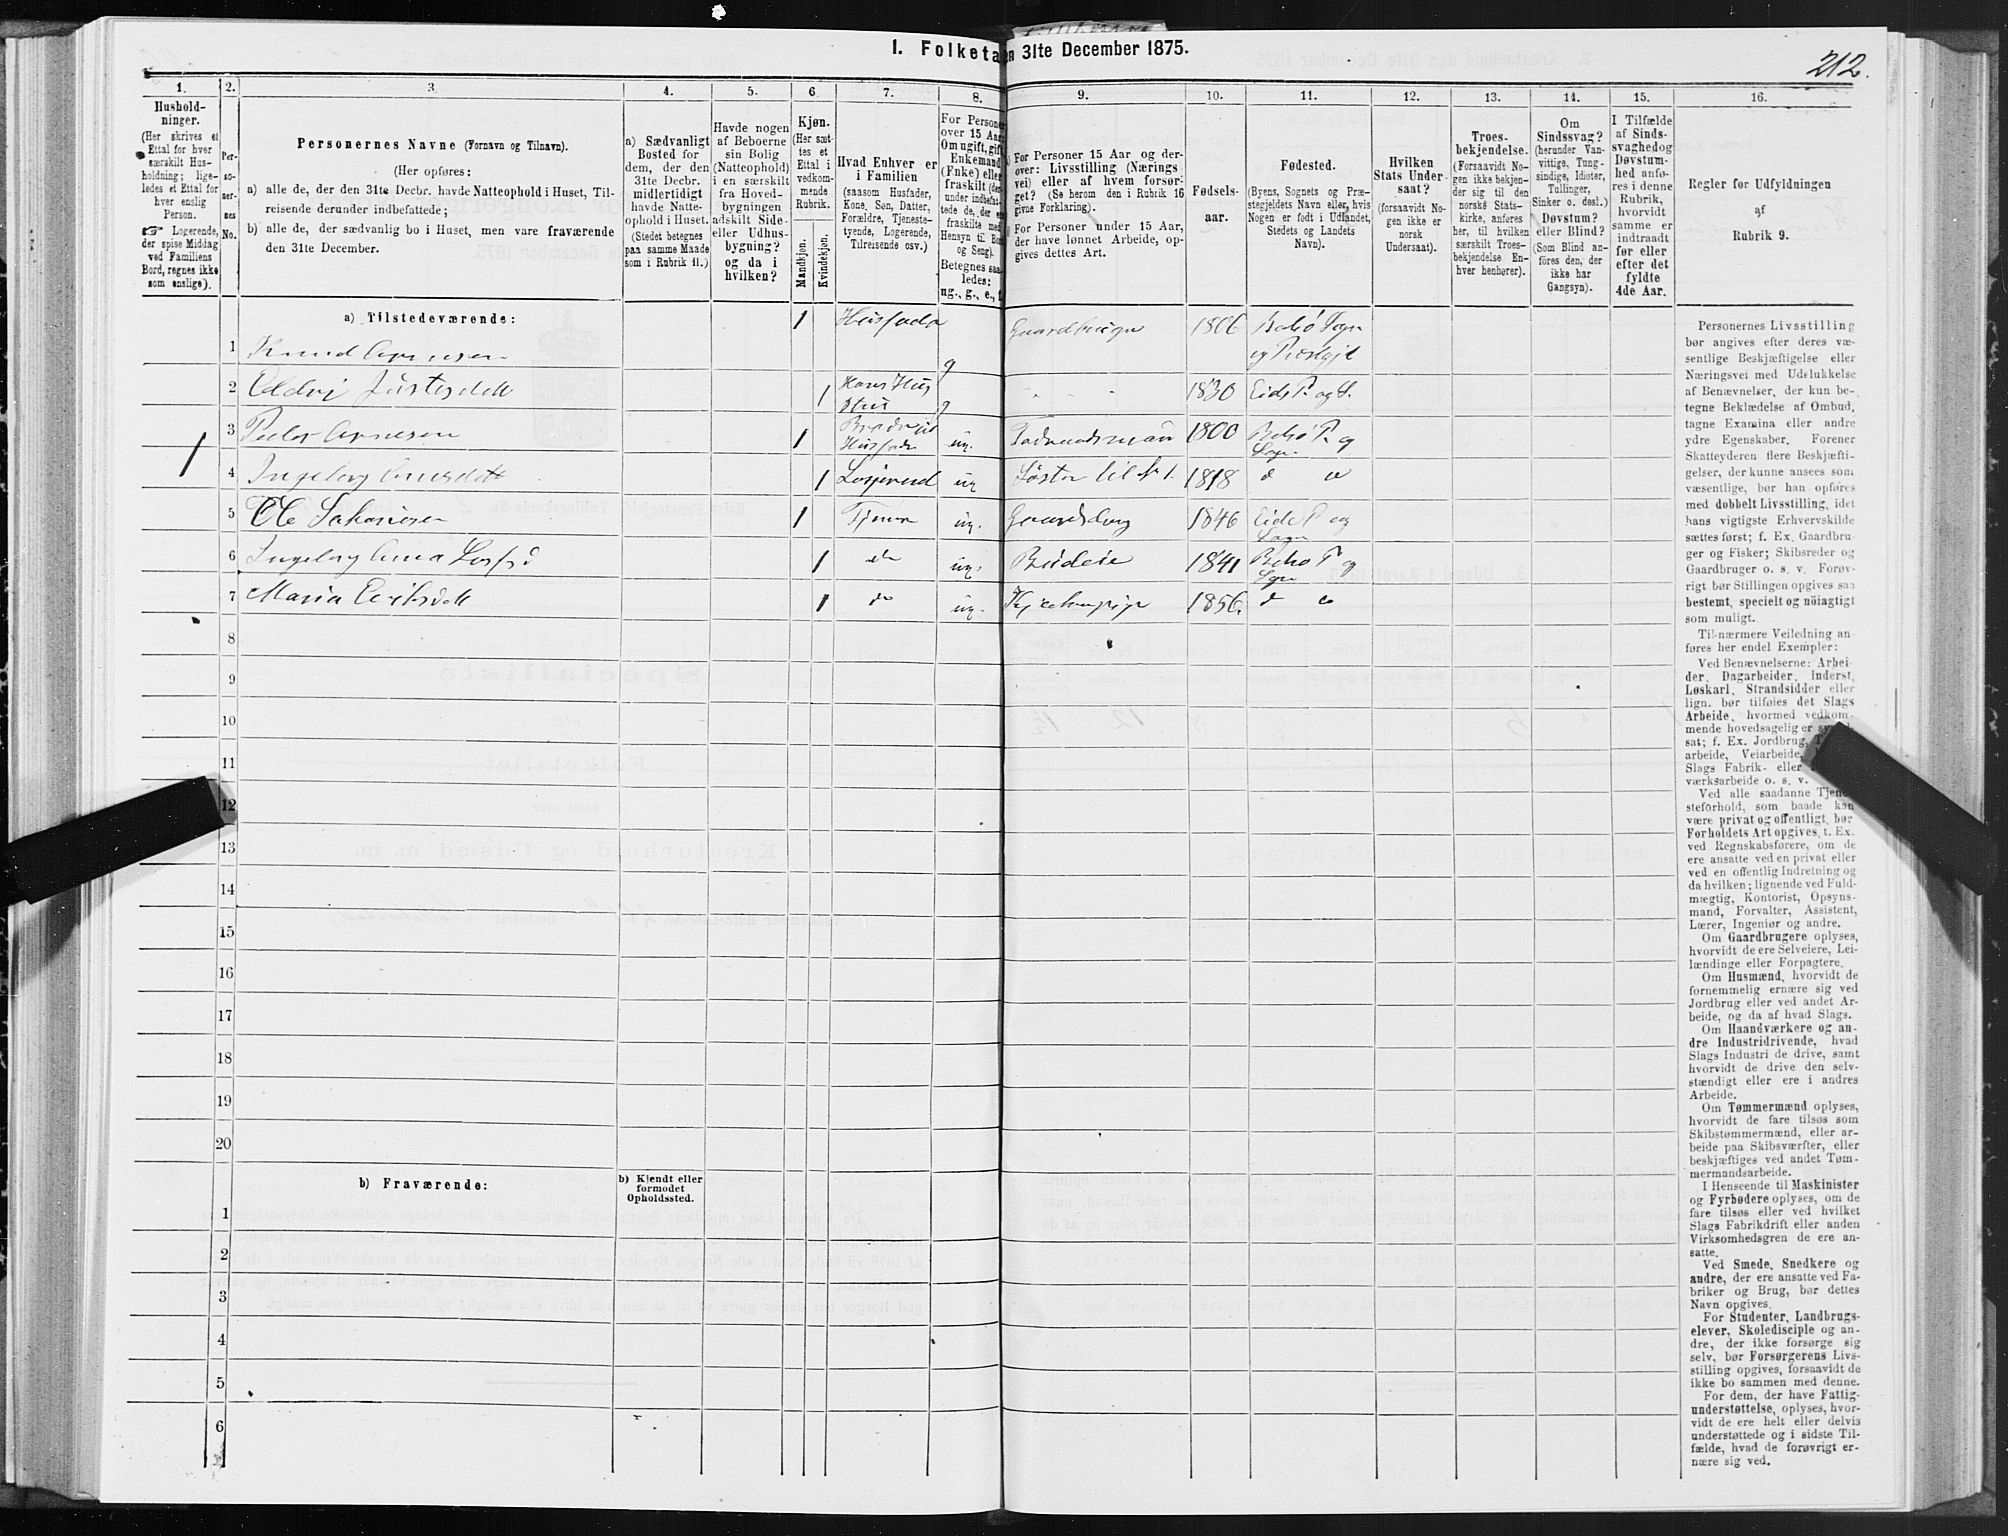 1. Folketa en 31te December 1875.
212.
1. 2. 3. 4. 5. 6. 7. 8. 9. 10. 11. 12. 13. 14. 15. 16.
Hushold-
ninger.
(Her skrives et
Ettal for hver
særskilt Hus-
holdning; lige-
ledes et Ettal for
hver enslig
Person.
☞ Logerende,
der spise Middag
ved Familiens
Bord, regnes ikke
som enslige).
Per-
so-
ner-
nes
No.
Personernes Navne (Fornavn og Tilnavn).
(Her opføres:
a) alle de, der den 31te Decbr. havde Natteophold i Huset, Til-
reisende derunder indbefattede;
b) alle de, der sædvanlig bo i Huset, men vare fraværende
den 31te December.
a) Sædvanligt
Bosted for
dem, der den
31te Decbr.
midlertidigt
havde Natte-
ophold i Huset.
(Stedet betegnes
paa samme Maade
som i Rubrik 11.)
Havde nogen
af Beboerne
sin Bolig
(Natteophold)
i en særskilt
fra Hoved-
bygningen
adskilt Side-
eller Udhus-
bygning?
og da i
hvilken?
Kjøn.
(Her sæt-
tes et
Ettal i
vedkom-
mende
Rubrik.
Mandkjøn.
Kvindekjøn.
Hvad Enhver er
i Familien
(saasom Husfader,
Kone, Søn, Datter,
Forældre, Tjeneste-
tyende, Logerende,
Tilreisende osv.)
For Personer
over 15 Aar:
Om ugift, gift,
Enkemand
(Enke) eller
fraskilt
Betegnes saa-
ledes:
ug., g., e., f.
For Personer 15 Aar og der-
over: Livsstilling (Nærings
vei) eller af hvem forsør-
get? (Se herom den i Rubrik 16
givne Forklaring).
For Personer under 15 Aar,
der have lønnet Arbeide, op-
gives dettes Art.
Fødsels-
aar.
Fødested.
(Byens, Sognets og Præ-
stegjeldets Navn eller, hvis
Nogen er født i Udlandet,
Stedets og Landets
Navn).
Hvilken
Stats Under-
saat?
(forsaavidt No-
gen ikke er
norsk
Undersaat).
Troes-
bekjendelse.
(Forsaavidt No-
gen ikke bekjen-
der sig til den
norske Stats-
kirke, anføres
her, til hvilken
særskilt Troes-
bekjendelse En-
hver henhører).
Om
Sindssvag?
(herunder Van-
vittige, Tung-
sindige, Idioter,
Tullinger,
Sinker o. desl.)
Døvstum?
eller Blind?
(Som Blind an-
føres den, der
ikke har
Gangsyn).
I Tilfælde
af Sinds-
svaghedog
Døvstum-
hed anfø-
res i denne
Rubrik,
hvorvidt
samme er
indtraadt
før eller
efter det
fyldte
4de Aar.
Regler for Udfyldningen
af
Rubrik 9.
a) Tilstedeværende:
1 Knud 1 Husfader g Gaardbruger 1806 Bolsø Sogn
og Præstgjd
2 1 Kone g 1830 Eids P. og S.
3 Peder 1 ug. 1800 Bolsø P. og
Sogn
1
4 Ingeborg 1 Losjerend ug Søster til No 1. 1818 d o
5 Ole 1 Tjener ug. Gaardsdreng 1846 Eids P. og
Sogn
6 Ingeborg Anna 1 do ug. Budeie 1841 Bolsø P. og
Sogn
7 Maria Eriksdatt 1 do ug. 1856. d o
8
9
10
11
12
13
14
15
16
17
18
19
20
b) Fraværende:
b) Kjendt eller
formodet
Opholdssted.
1
2
3
4
5
6
Personernes Livsstilling
bør angives efter deres væ-
sentlige Beskjæftigelse eller
Næringsvei med Udelukkelse
af Benævnelser, der kun be-
tegne Beklædelse af Ombud,
tagne Examina eller andre
ydre Egenskaber. Forener
Skatteyderen flere Beskjæfti-
gelser, der kunne ansees som
væsentlige, bør han opføres
med dobbelt Livsstilling, idet
hans vigtigste Erhvervskilde
sættes først; f. Ex. Gaardbru-
ger og Fisker; Skibsreder og
Gaardbruger o. s. v. Forøv-
rigt bør Stillingen opgives saa
bestemt, specielt og nöiagtigt
som muligt.
Til nærmere Veiledning an-
føres her endel Exempler:
Ved Benævnelserne: Arbei-
der, Dagarbeider, Inderst,
Løskarl, Strandsidder eller
lign. bør tilføies det Slags
Arbeide, hvormed vedkom-
mende hovedsagelig er
sat; f. Ex. Jordbrug,
arbeide, Veiarbeide,
Slags Fabrik- eller
værksarbeide o. s. v.
Ved alle saadanne Tjene-
steforhold, som baade kan
være privat og offentligt, bør
Forholdets Art opgives, t. Ex.
ved Regnskabsførere, om de
ere ansatte ved en privat eller
ved en offentlig Indretning og
da hvilken; lignende ved Fuld-
mægtig, Kontorist, Opsyns-
mand, Forvalter, Assistent,
Lærer, Ingeniør og andre.
Om Gaardbrugere oplyses,
hvorvidt de ere Selveiere, Lei-
lændinge eller Forpagtere.
Om Husmænd, hvorvidt de
fornemmelig ernære sig ved
Jordbrug eller ved andet Ar-
beide, og da af hvad Slags.
Om Haandværkere og an-
dre Industridrivende, hvad
Slags Industri de drive, samt
hvorvidt de drive den selv-
stændigt eller ere i andres
Arbeide.
Om Tømmermænd oplyses,
hvorvidt de fare tilsøs som
Skibstømmermænd, eller ar-
beide paa Skibsværfter, eller
beskjæftiges ved andet Tøm-
mermandsarbeide.
I Henseende til Maskinister
og Fyrbødere oplyses, om de
fare tilsøs eller ved hvilket
Slags Fabrikdrift eller anden
Virksomhedsgren de ere an-
satte.
Ved Smede, Snedkere og
andre, der ere ansatte ved Fa-
briker og Brug, bør dettes
Navn opgives.
For Studenter, Landbrugs-
elever, Skoledisciple og an-
dre, der ikke forsørge sig
selv, bør Forsørgerens Livs-
stilling opgives, forsaavidt de
ikke bo sammen med denne.
For dem, der have Fattig-
understøttelse, oplyses, hvor-
vidt de ere helt eller delvis
understøttede og i sidste Til-
fælde, hvad de forøvrigt er-
nære sig ved.